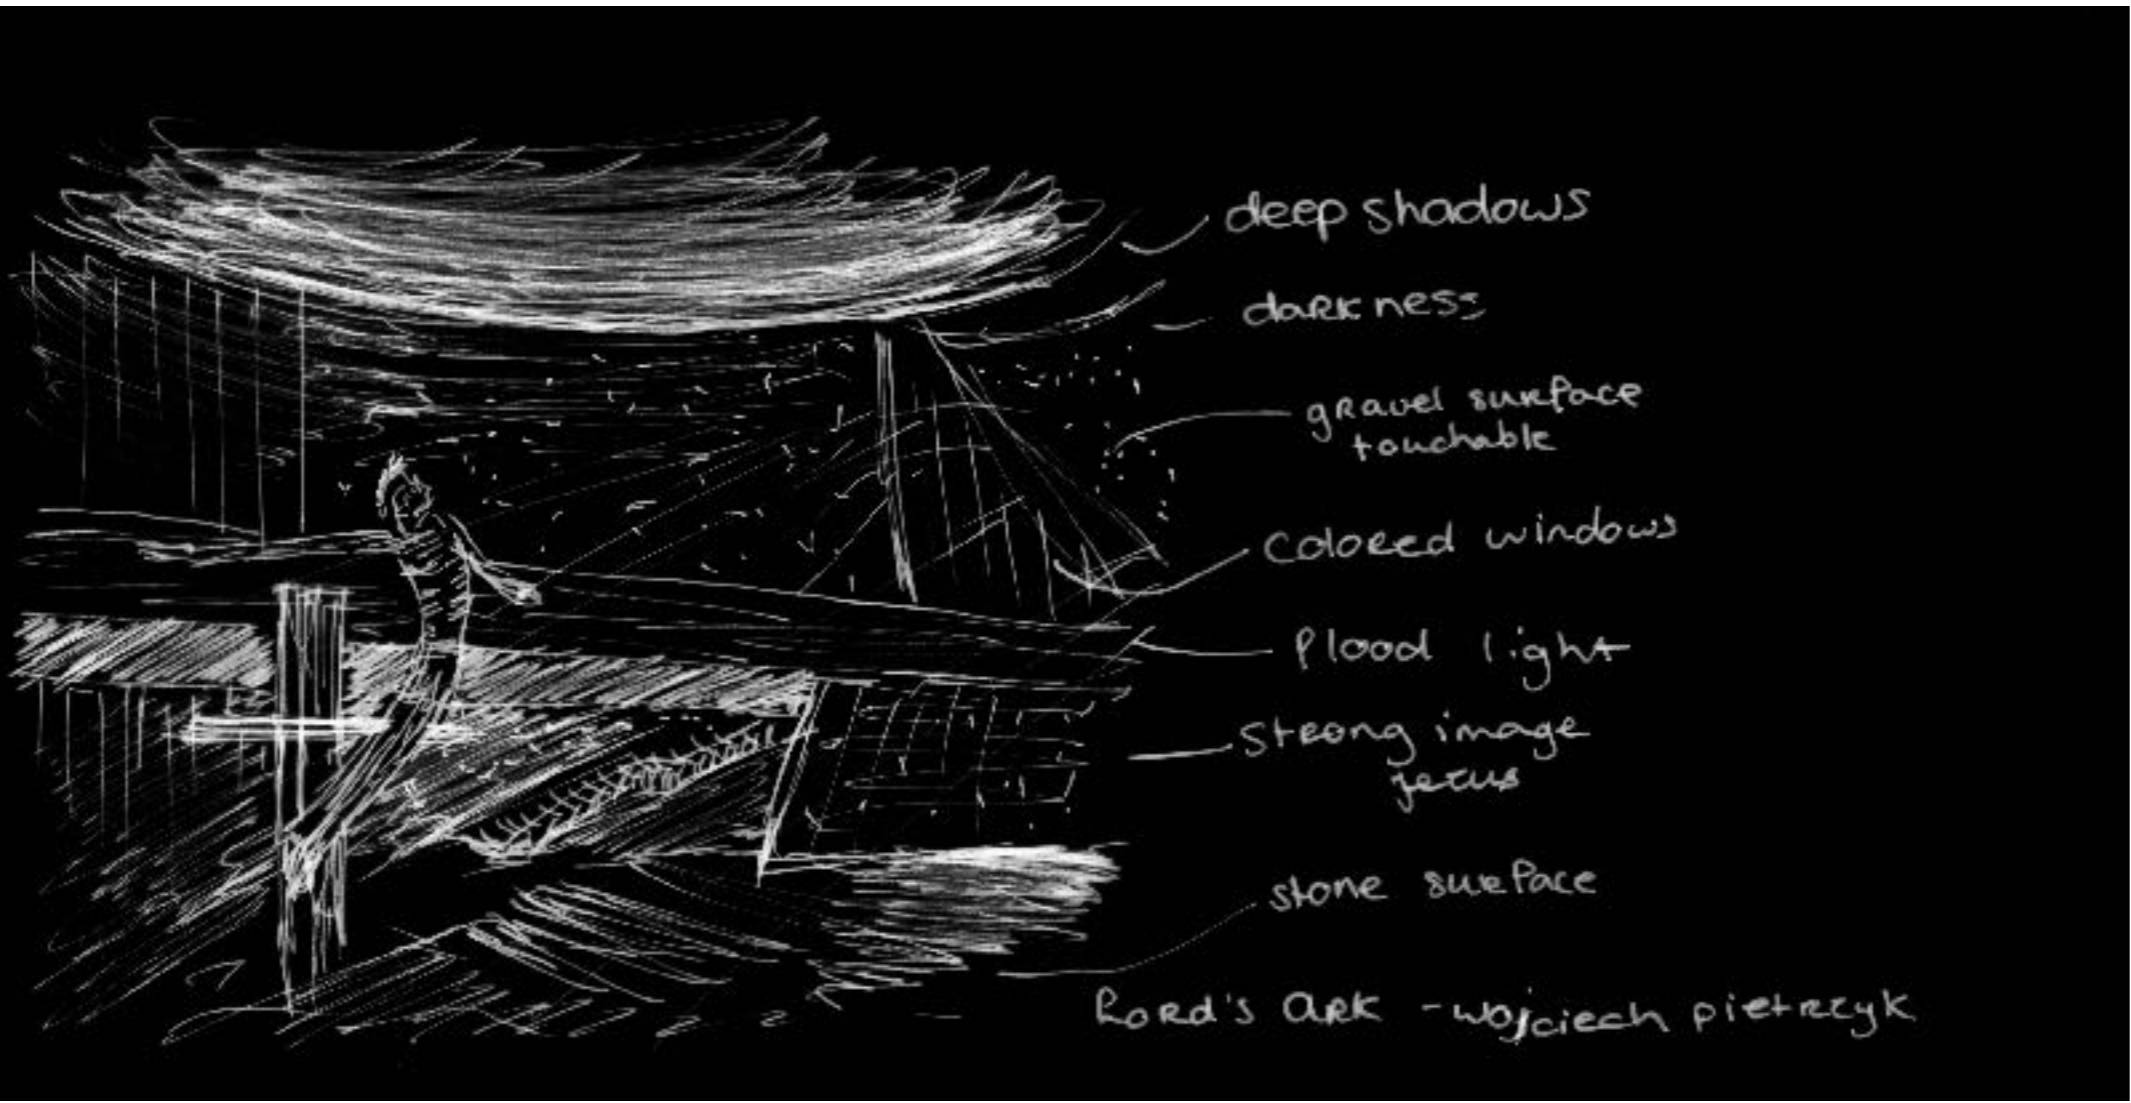 deep shadows
darkness
gravel surface
touchable
Colored windows
flood light
Strong image
jezus
stone surface
Lord's Ark - wojciech pietrzyk